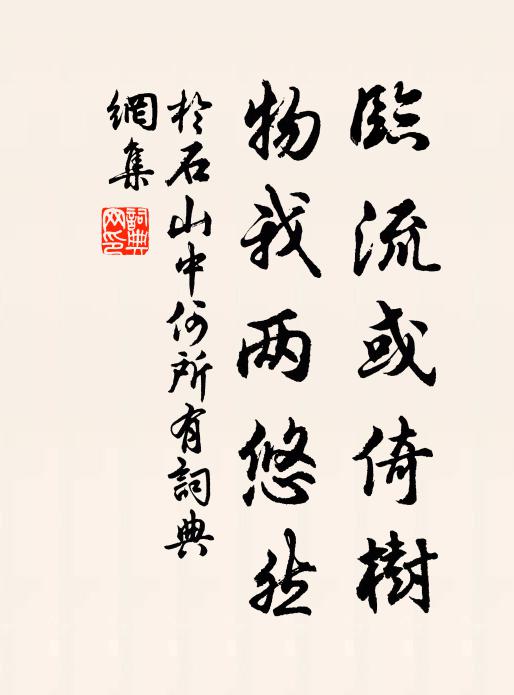 臨流或倚樹
物我两悠然
於石山中何所有詞典
網集
詞典
网印